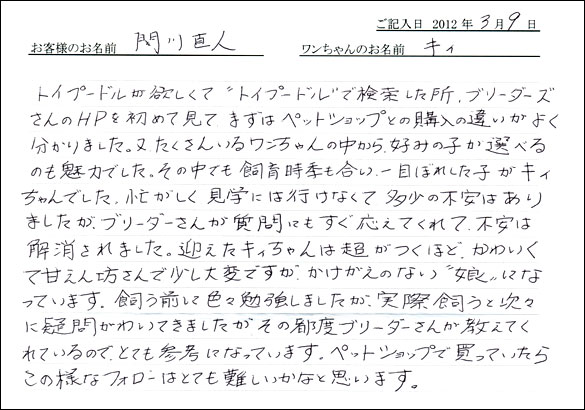 ご記入日 2012 年 3 月 9 日
お客様のお名前 関川直人 ワンちゃんのお名前 キィ
トイプードルが欲しくて"トイプードル"で検索した所、ブリーダーズ
さんのHPを初めて見て まずは ペットショップとの購入の違いがよく
分かりました。又 たくさんいるワンちゃんの中から、好みの子が選べる
のも魅力でした。その中でも 飼育時季も合い、一目ぼれした子がキィ
ちゃんでした。忙がしく 見学には行けなくて 多少の不安はあり
ましたが、ブリーダーさんが 質問にもすぐ応えてくれて、不安は
解消されました。迎えたキィちゃんは超がつくほど、かわいく
て甘えん坊さんで少し大変ですが、かけがえのない"娘"にな
っています。飼う前に色々勉強しましたが、実際飼うと次々
に疑問がわいてきましたが その都度ブリーダーさんが教えてく
れているので、とても参考になっています。ペットショップで買っていたら
この様なフォローはとても難しいかなと思います。